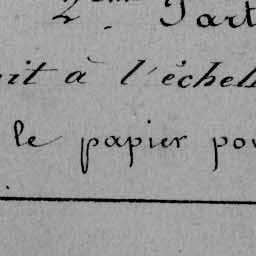 2ème Part
it à l'échel
le papier pou